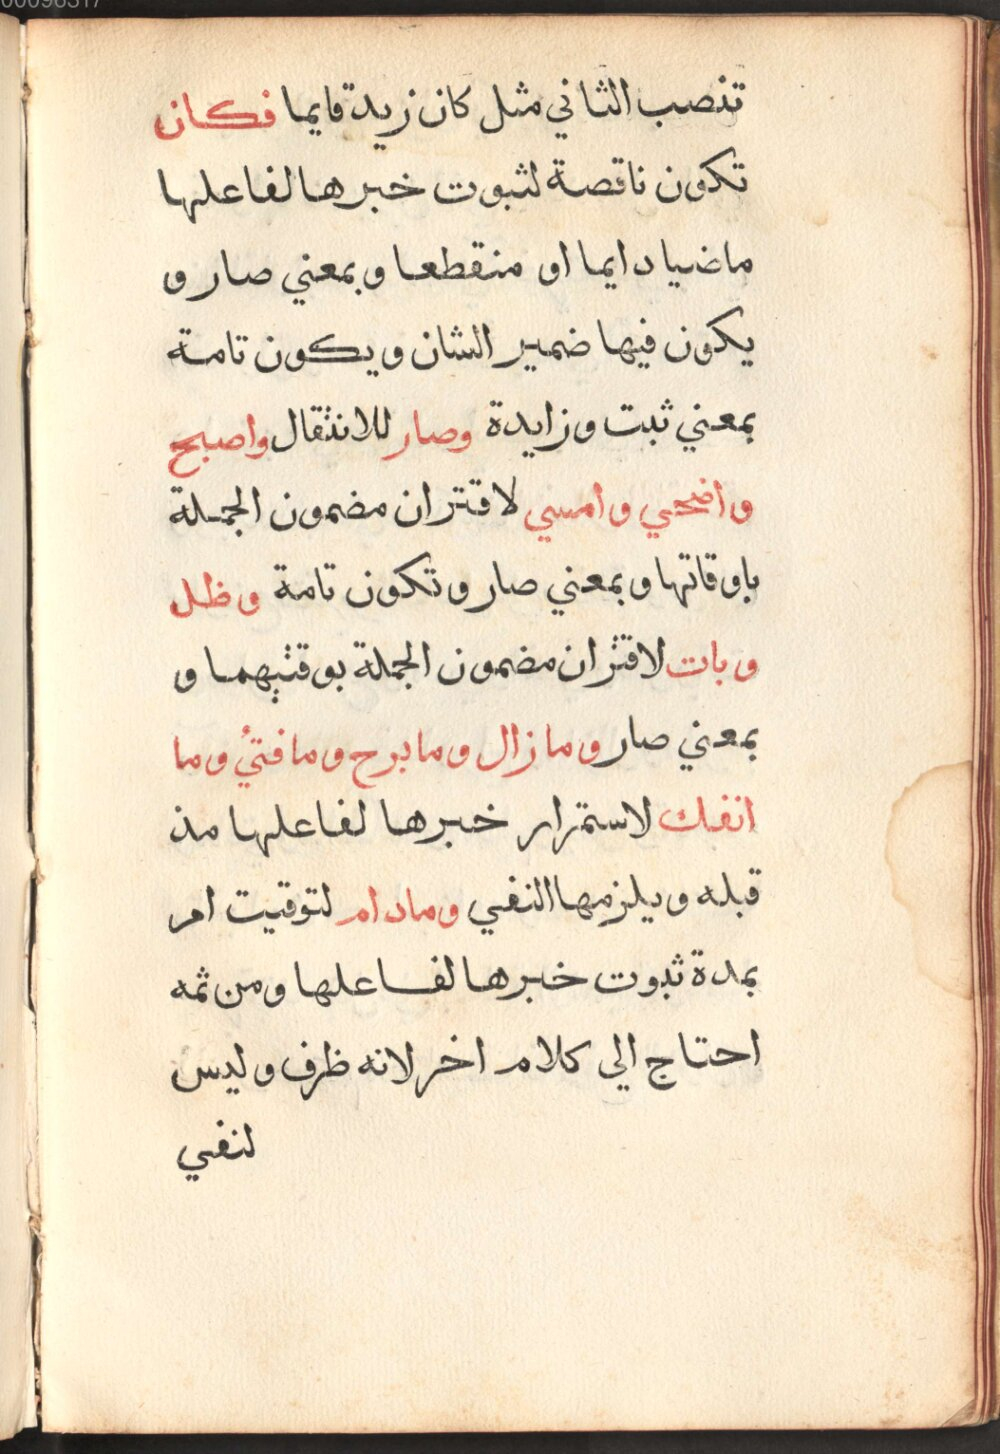 تنصب الثاني مثل كان زيدة قايما فكان
تكون ناقصة لثبوت خبرها لفاعلها
ماضيا دايما او منقطعا وبمعني صار و
يكون فيها ضمير الشان ويكون تامة
بمعني ثبت وزايدة وصار للانتقال واصبح
واضحي وامسي لاقتران مضمون الجملة
باوقاتها وبمعني صار وتكون تامة وظل
وبات لاقتران مضمون الجملة بوقتيهما و
بمعني صار وما زال وما برح وما فتيُ وما
انفك لاستمرار خبرها لفاعلها مذ
قبله ويلزمها النفي ومادام لتوقيت امر
بمدة ثبوت خبرها لفاعلها ومن ثمه
احتاج الي كلام اخر لانه ظرف وليس
لنفي